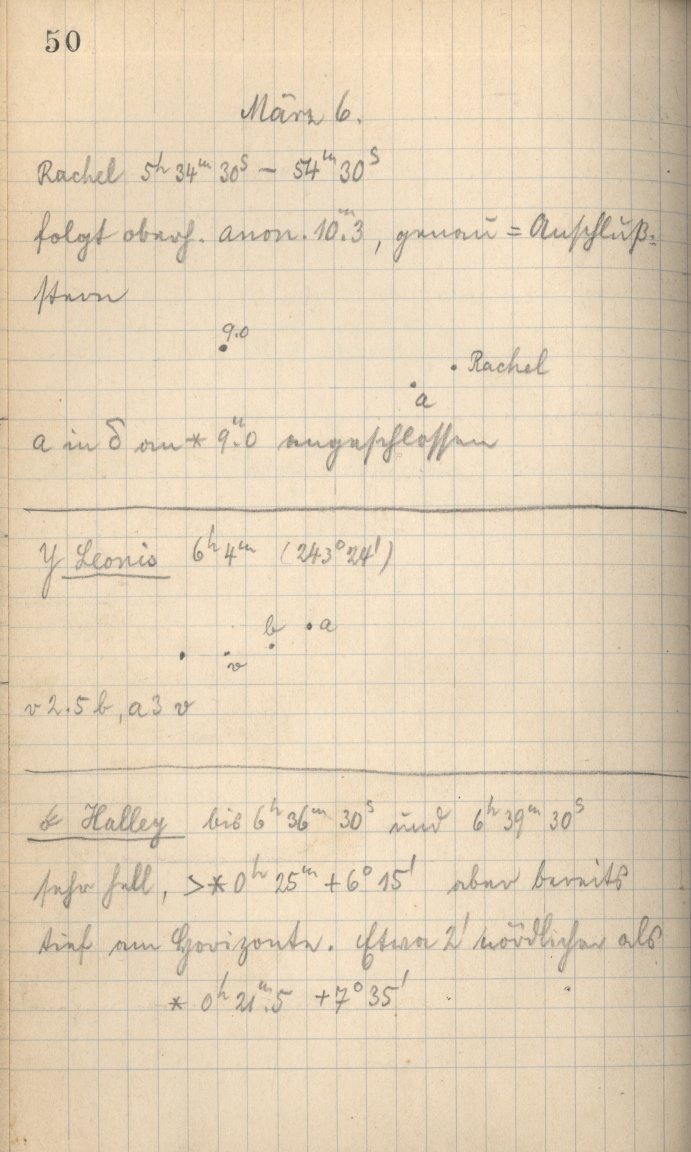 50
März 6.
Rachel 5ʰ 34ᵐ 30ˢ – 54ᵐ 30ˢ
folgt oberh. anon. 10ᵐ.3, genau = Anschluß-
stern
9.0
Rachel
a
a in δ an * 9ᵐ.0 angeschlossen
Y Leonis 6ʰ 4ᵐ (243° 24')
b a
v
v 2.5 b, a 3 v
☄ Halley bis 6ʰ 36ᵐ 30ˢ und 6ʰ 39ᵐ 30ˢ
sehr hell, > * 0ʰ 25ᵐ + 6° 15' aber bereits
tief am Horizonte. Etwa 2' nördlicher als
* 0ʰ 21ᵐ.5 + 7° 35'